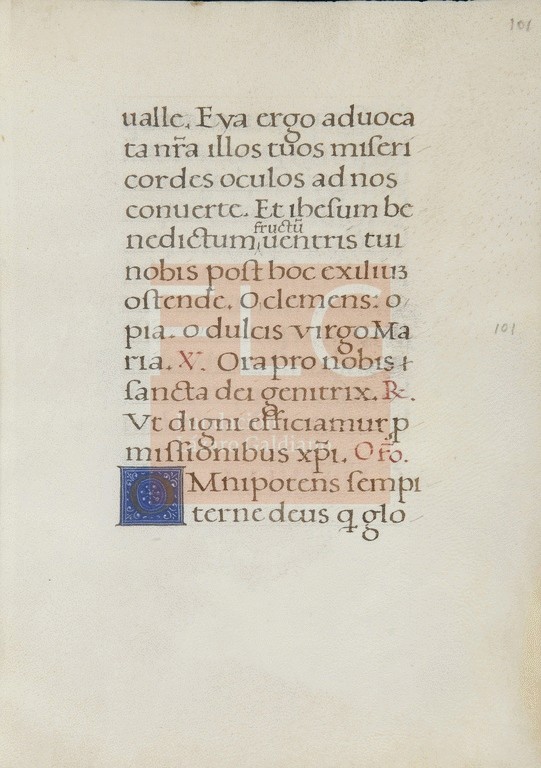 101
ualle. Eya ergo aduoca
ta nr̃a illos tuos miſeri
cordes oculos ad nos
conuerte. Et iheſum be
fructũ
nedictum uentris tui
nobis poſt hoc exiliuꝫ
oſtende. O clemens: o
pia. o dulcis virgo Ma
ria. V. Ora pro nobis
ſancta dei genitrix. ℞.
Vt digni efficiamur ꝓ
miſſionibus xp̃i. Or̃o.
OMnipotens ſempi
terne deus q̃ glo
101
FLG
Lázaro Galdiano